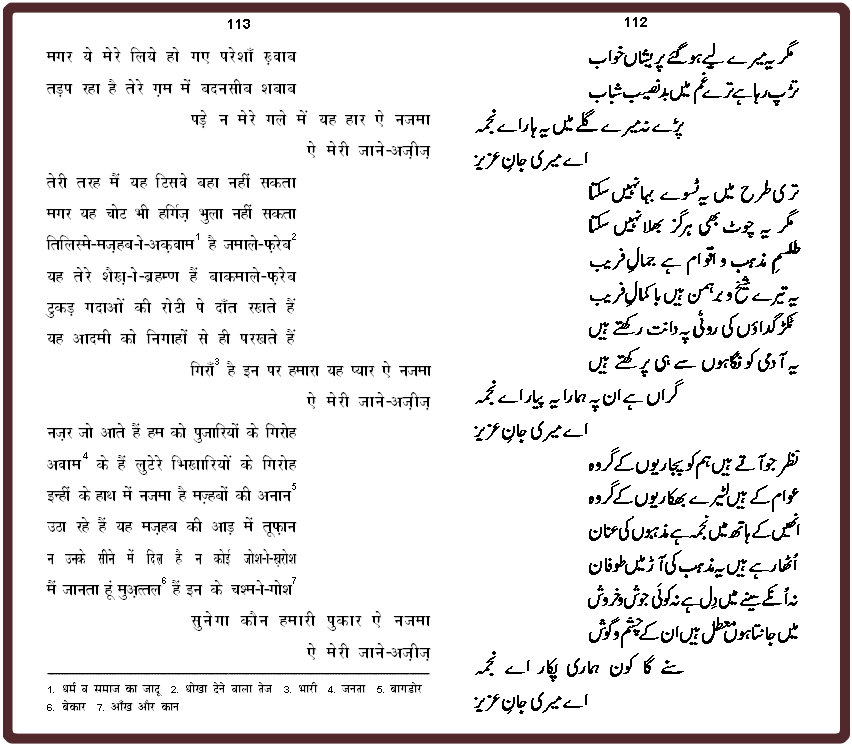 113
मगर ये मेरे लिये हो गए परेशाँ ख़्वाब
तड़प रहा है तेरे ग़म में बदनसीब शबाब
पड़े न मेरे गले में यह हार ऐ नजमा
ऐ मेरी जाने-अज़ीज़
तेरी तरह मैं यह टिसवे बहा नहीं सकता
मगर यह चोट भी हर्गिज़ भुला नहीं सकता
तिलिस्मे-मज़हब-ने-अक़वाम1 है जमाले-फ़रेब2
यह तेरे शैख़-ने-ब्रहम्ण हैं बाकमाले-फ़रेब
टुकड़ गदाओं की रोटी पे दाँत रखते हैं
यह आदमी को निगाहों से ही परखते हैं
गिराँ3 है इन पर हमारा यह प्यार ऐ नजमा
ऐ मेरी जाने-अज़ीज़
नज़र जो आते हैं हम को पुजारियों के गिरोह
अवाम4 के हैं लुटेरे भिखारियों के गिरोह
इन्हीं के हाथ में नजमा है मज़्हबों की अनान5
उठा रहे हैं यह मज़हब की आड़ में तूफ़ान
न उनके सीने में दिल है न कोई जोश-ने-ख़रोश
मैं जानता हूं मुअ़त्तल6 हैं इन के चश्म-ने-गोश7
सुनेगा कौन हमारी पुकार ऐ नजमा
ऐ मेरी जाने-अज़ीज़
1. धर्म व समाज का जादू 2. धोखा देने वाला तेज 3. भारी 4. जनता 5. बागडोर
6. बेकार 7. आँख और कान
112
مگر یہ میرے لیے ہو گئے پریشاں خواب
تڑپ رہا ہے ترے غم میں بدنصیب شباب
پڑے نہ میرے گلے میں یہ ہار اے نجمہ
اے میری جانِ عزیز
تری طرح میں یہ ٹسوے بہا نہیں سکتا
مگر یہ چوٹ بھی ہرگز بھلا نہیں سکتا
طلسمِ مذہب و اقوام ہے جمالِ فریب
یہ تیرے شیخ و برہمن ہیں باکمالِ فریب
ٹکڑ گداؤں کی روٹی پہ دانت رکھتے ہیں
یہ آدمی کو نگاہوں سے ہی پرکھتے ہیں
گراں ہے ان پہ ہمارا یہ پیار اے نجمہ
اے میری جانِ عزیز
نظر جو آتے ہیں ہم کو پجاریوں کے گروہ
عوام کے ہیں لٹیرے بھکاریوں کے گروہ
انھیں کے ہاتھ میں نجمہ ہے مذہبوں کی عنان
اُٹھا رہے ہیں یہ مذہب کی آڑ میں طوفان
نہ اُنکے سینے میں دِل ہے نہ کوئی جوش و خروش
میں جانتا ہوں معطل ہیں ان کے چشم و گوش
سنے گا کون ہماری پکار اے نجمہ
اے میری جانِ عزیز